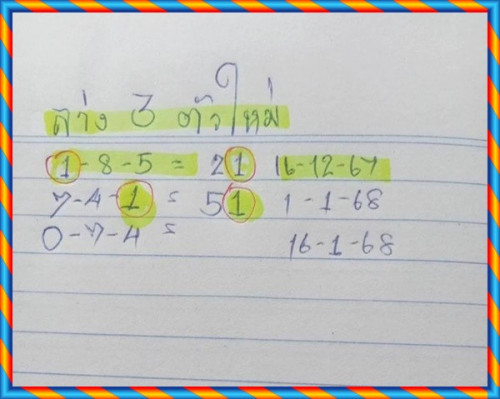 ล่าง 3 ตัวใหม่
1-8-5 = 21 16-12-67
7-4-1 = 51 1-1-68
0-7-4 = 16-1-68